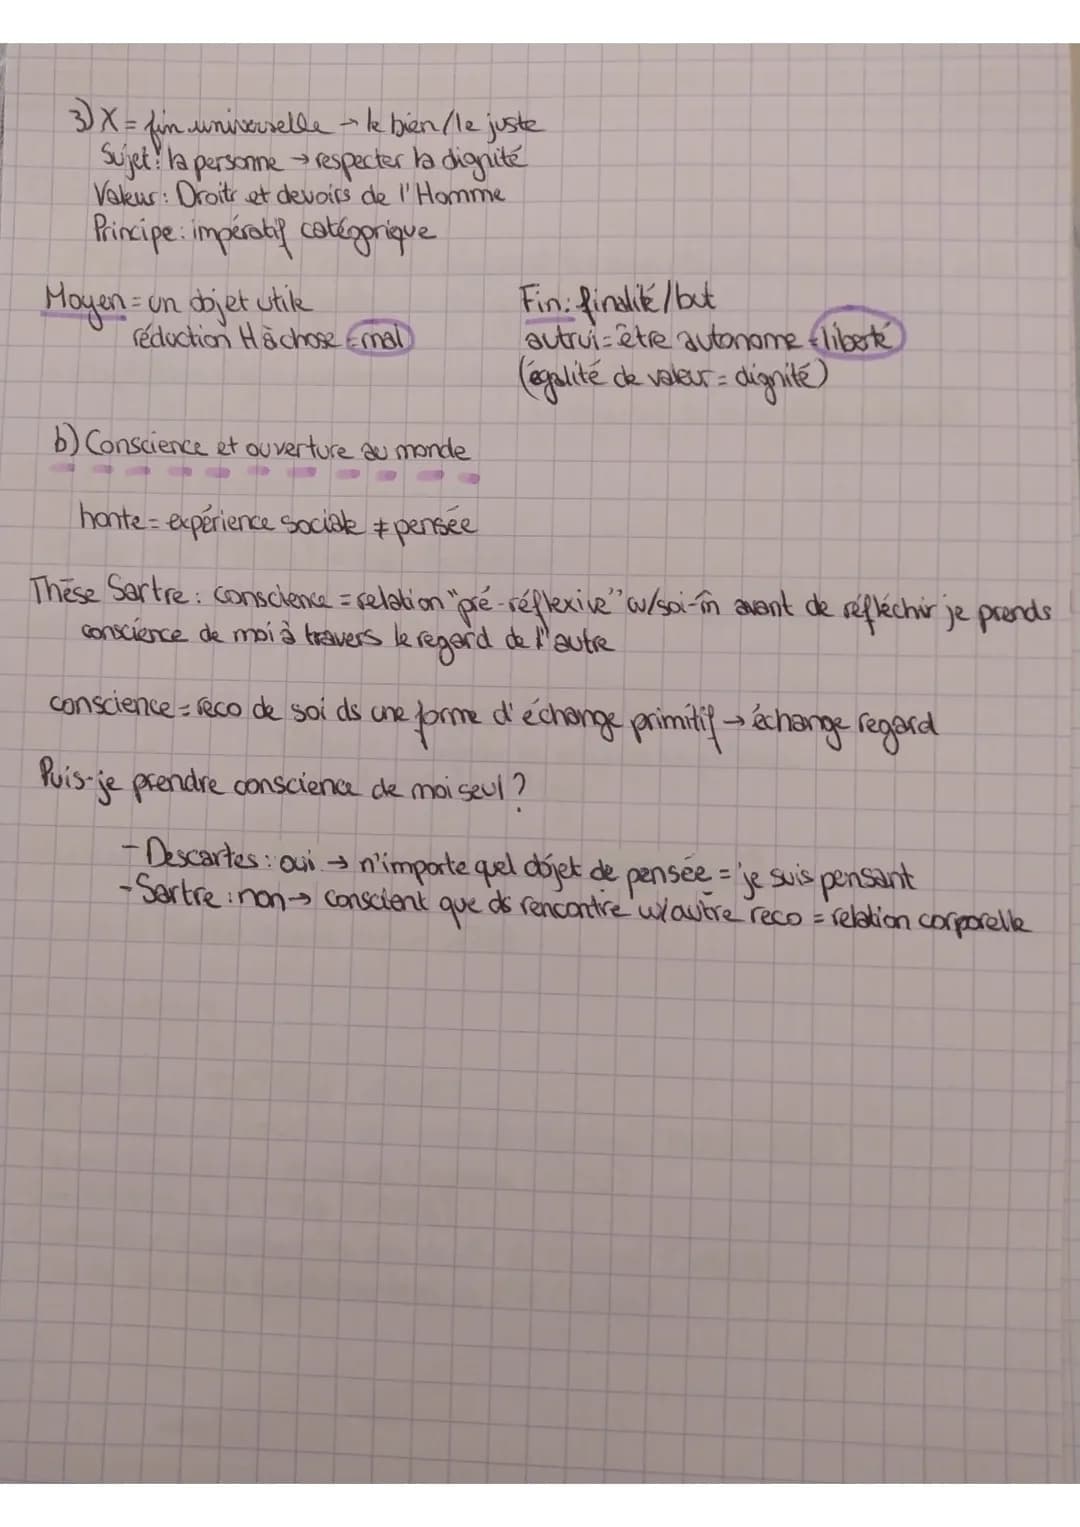 3) X = fin universelle → le bien/le juste
Sujet : la personne → respecter la dignité
Valeur : Droits et devoirs de l'Homme
Principe : impératif catégorique
Moyen = un objet utile
réduction H à chose = mal
Fin : finalité/but
autrui = être autonome = liberté
(égalité de valeur = dignité)
b) Conscience et ouverture au monde
honte = expérience sociale ≠ pensée
Thèse Sartre : conscience = relation "pré-réflexive" w/soi-m̂ avant de réfléchir je prends
conscience de moi à travers le regard de l'autre
conscience = reco de soi ds une forme d'échange primitif → échange regard
Puis-je prendre conscience de moi seul ?
- Descartes : oui → n'importe quel objet de pensée = je suis pensant
- Sartre : non → conscient que ds rencontre w/autre reco = relation corporelle